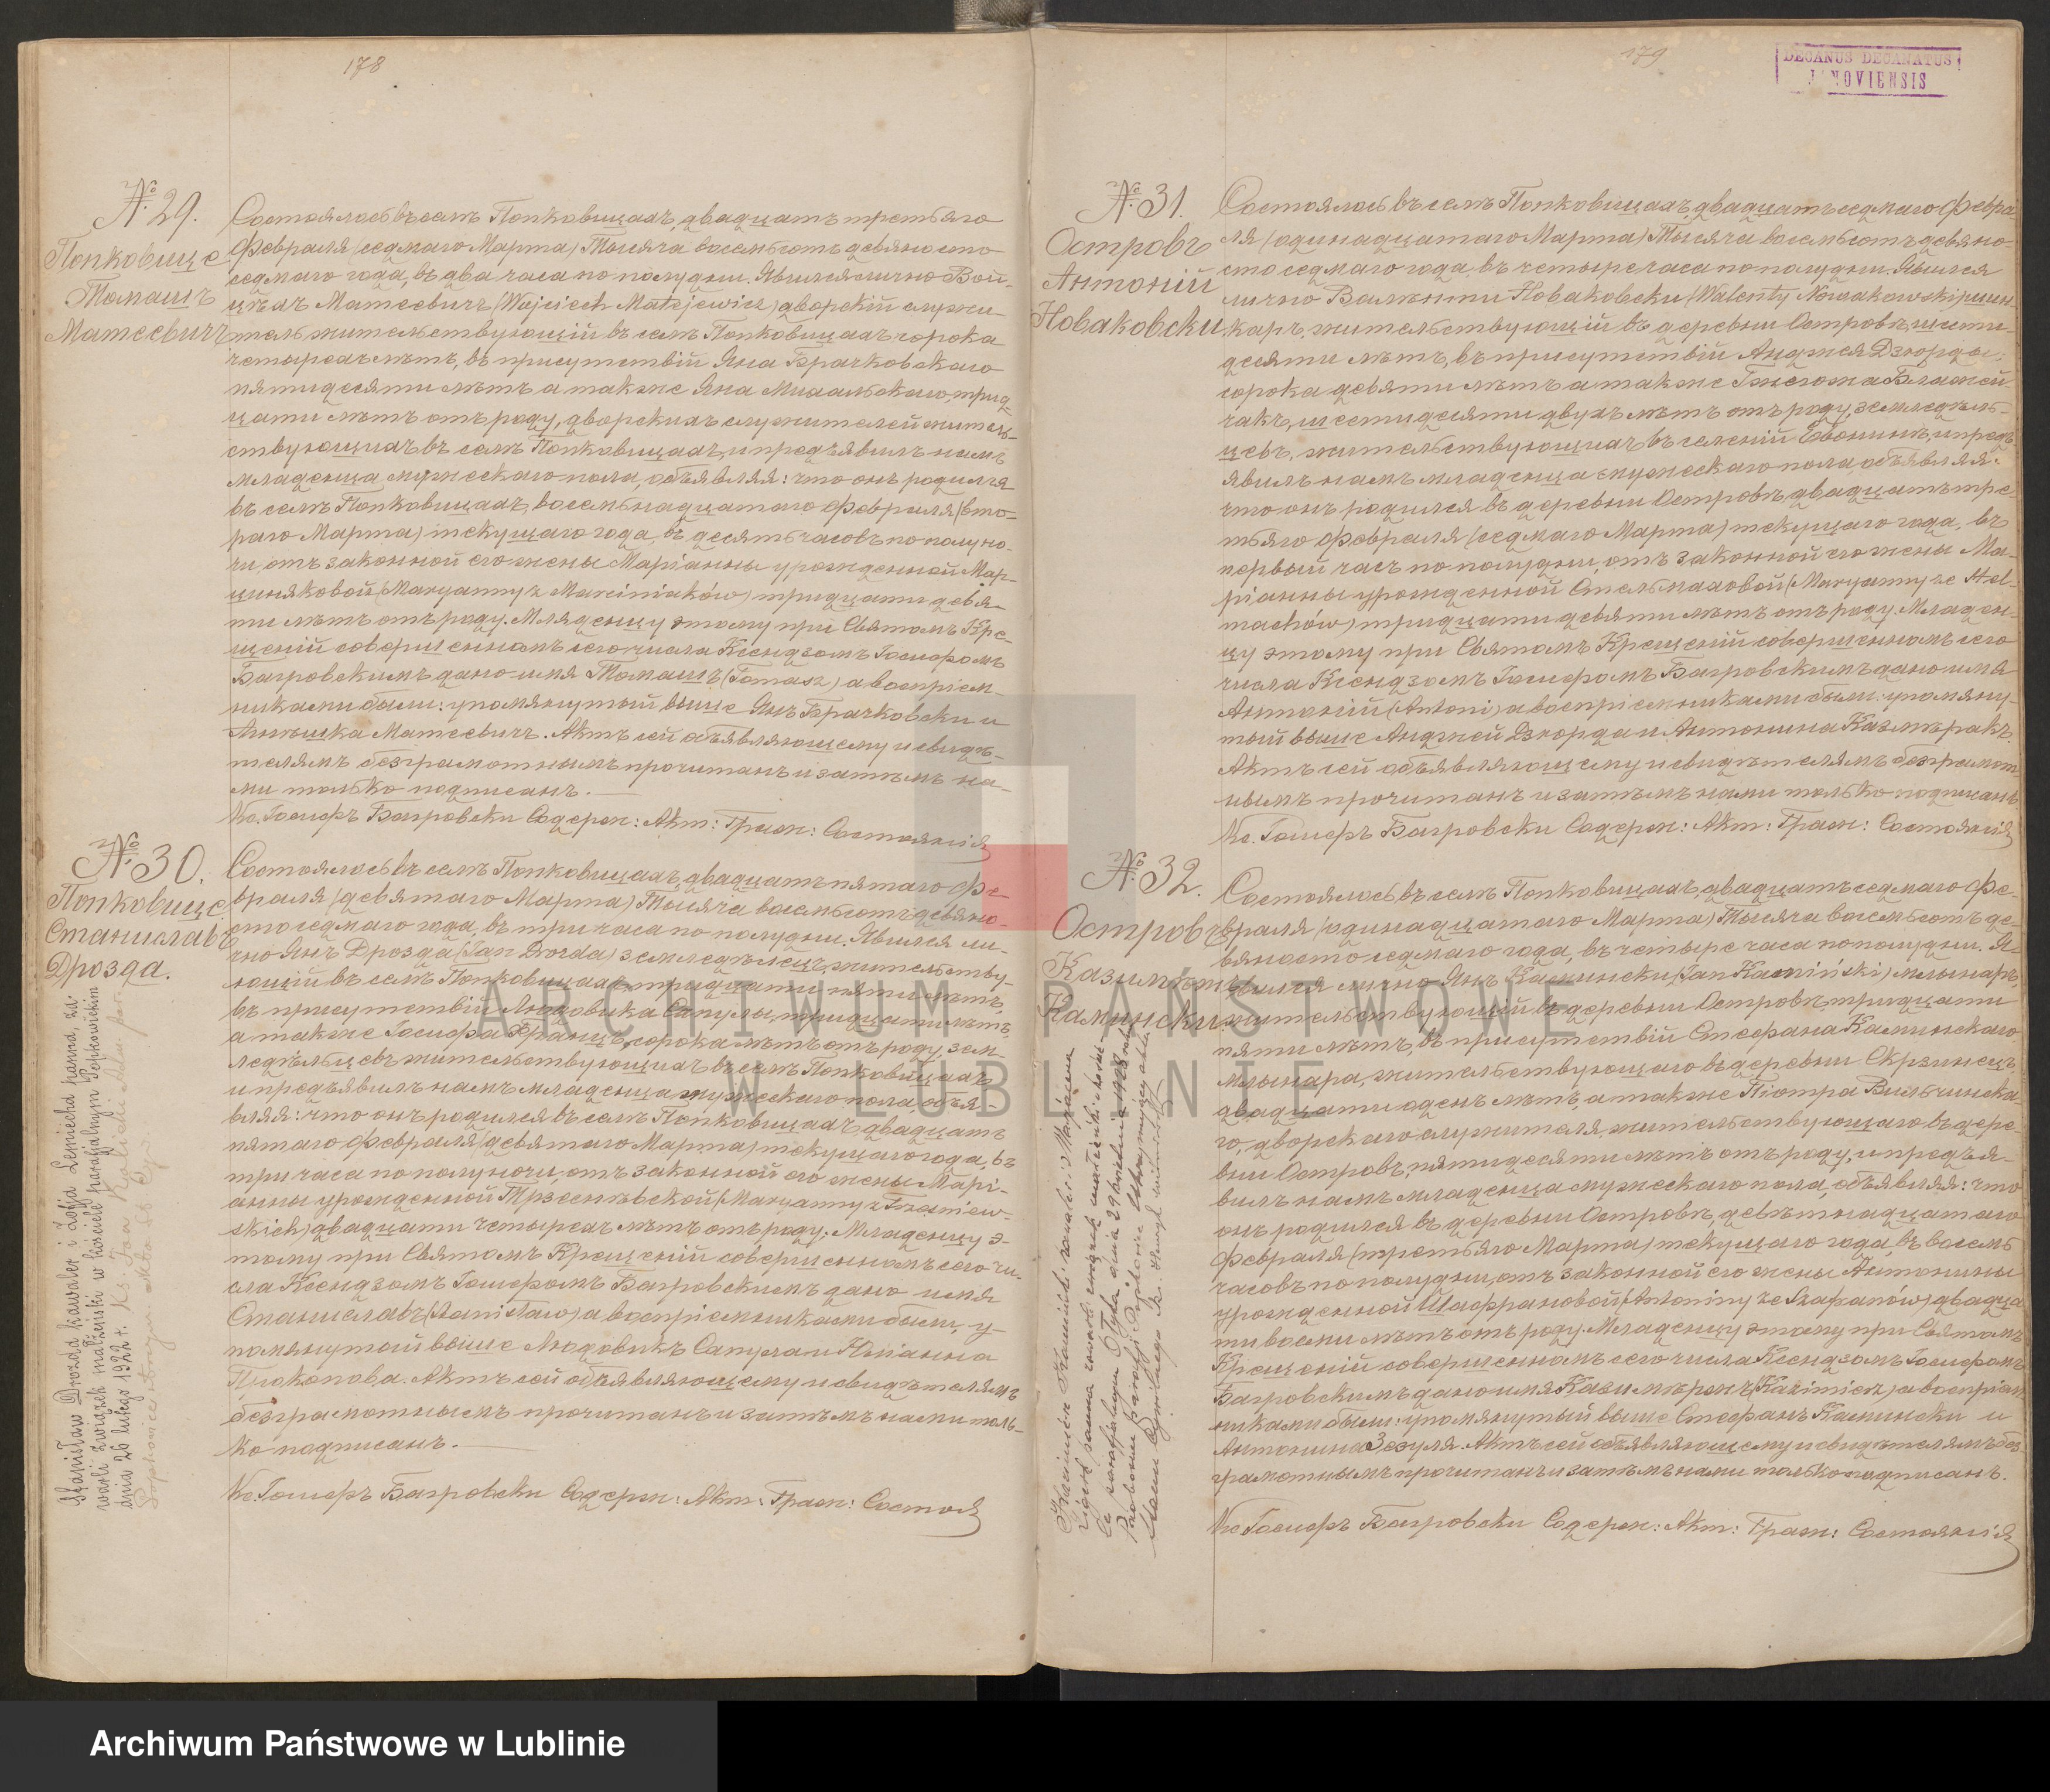 178
№ 29.
Попковице
Томашъ
Матеевичъ
Состоялось въ селѣ Попковицахъ, двадцать третьяго
Февраля (седмаго Марта) Тысяча восемьсотъ девяносто
седмаго года, въ два часа по полудни. Явился лично Вой-
цѣхъ Матеевичъ (Wojciech Matejewicz) дворскій служи-
тель жительствующій въ селѣ Попковицахъ сорока
четырехъ лѣтъ, въ присутствіи Яна Брачковскаго
пятидесяти лѣтъ а также Яна Михальскаго, трид-
цати лѣтъ отъ роду, дворскихъ служителей житель-
ствующихъ въ селѣ Попковицахъ, и предъявилъ намъ
младенца мужескаго пола, объявляя: что онъ родился
въ селѣ Попковицахъ, восемьнадцатаго Февраля (вто-
раго Марта) текущаго года, въ десять часовъ по полуно-
чи отъ законной его жены Маріанны урожденной Мар-
циняковой (Maryanny z Marciniaków) тридцати девя-
ти лѣтъ отъ роду. Младенцу этому при Святомъ Кре-
щеніи совершенномъ сего числа Ксендзомъ Іосифомъ
Багровскимъ дано имя Томашъ (Tomasz) а воспріем-
никами были: упомянутый выше Янъ Брачковски и
Агнѣшка Матеевичъ. Актъ сей объявляющему и свидѣ-
телямъ безграмотнымъ прочитанъ и затѣмъ на-
ми только подписанъ.
Кс. Іосифъ Багровски Содерж: Акт: Граж: Состоянія
№ 30.
Попковице
Станиславъ
Дрозда.
Состоялось въ селѣ Попковицахъ, двадцать пятаго Фе-
враля (девятаго Марта) Тысяча восемьсотъ девяно-
сто седмаго года, въ три часа по полудни. Явился ли-
чно Янъ Дрозда (Jan Drozda) земледѣлецъ, жительству-
ющій въ селѣ Попковицахъ, тридцати пяти лѣтъ,
въ присутствіи Людовика Сапулы, тридцати лѣтъ,
а также Іосифа сорока лѣтъ отъ роду, зем-
ледѣльцевъ жительствующихъ въ селѣ Попковицахъ
и предъявилъ намъ младенца мужескаго пола, объя-
вляя: что онъ родился въ селѣ Попковицахъ двадцать
пятаго Февраля (девятаго Марта) текущаго года, въ
три часа по полуночи, отъ законной его жены Марі-
анны урожденной Трзсенѣвской (Maryanny z Trzeniew-
skich) двадцати четырехъ лѣтъ отъ роду. Младенцу э-
тому при Святомъ Крещеніи совершенномъ сего чи-
сла Ксендзомъ Іосифомъ Багровскимъ дано имя
Станиславъ (Stanisław) а воспріемниками были, у-
помянутый выше Людовикъ Сапула и Юліанна
Плоконова. Актъ сей объявляющему и свидѣтелямъ
безграмотнымъ прочитанъ и затѣмъ нами толь-
ко подписанъ.
Кс. Іосифъ Багровски Содерж: Акт: Граж: Состоя
Stanisław Drozda kawaler i Zofja Leśniecha panna, za-
warli związek małżeński w kościele parafjalnym Popkowickim
dnia 26 lutego 1922 r. Ks. Jan
179
DECANUS DECANATUS
J NOVIENSIS
№ 31.
Островъ
Антоній
Новаковски
Состоялось въ селѣ Попковицахъ, двадцать седмаго Февра-
ля (одинадцатаго Марта) Тысяча восемьсотъ девяно-
сто седмаго года, въ четыре часа по полудни. Явился
лично Валѣнти Новаковски (Walenty Nowakowski) шин-
каръ, жительствующій въ деревни Островѣ, шести-
десяти лѣтъ, въ присутствіи Анджея Дзюрды,
сорока девяти лѣтъ а также Гжегожа Блажей-
чакъ, шестидесяти двухъ лѣтъ отъ роду, земледѣль-
цевъ, жительствующихъ въ селеніи Евонинѣ, и предъ-
явилъ намъ младенца мужескаго пола объявляя:
что онъ родился въ деревни Островѣ двадцать тре-
тьяго Февраля (седмаго Марта) текущаго года, въ
первый часъ по полудни, отъ законной его жены Ма-
ріанны урожденной Стельмаховой (Maryanny ze Stel-
machów) тридцати девяти лѣтъ отъ роду. Младен-
цу этому при Святомъ Крещеніи совершенномъ сего
числа Ксендзомъ Іосифомъ Багровскимъ дано имя
Антоній (Antoni) а воспріемниками были: упомяну-
тый выше Анджей Дзюрда и Антонина Казмѣракъ.
Актъ сей объявляющему и свидѣтелямъ безграмот-
нымъ прочитанъ и затѣмъ нами только подписанъ
Кс. Іосифъ Багровски Содерж: Акт: Граж: Состоянія
№ 32.
Островъ
Казимѣржъ
Каминьски
Состоялось въ селѣ Попковицахъ, двадцать седмаго Фе-
враля (одинадцатаго Марта) Тысяча восемьсотъ де-
вяносто седмаго года, въ четыре часа по полудни. Я-
вился лично Янъ Каминьски (Jan Kamiński) млынаръ,
жительствующій въ деревни Островѣ тридцати
пяти лѣтъ, въ присутствіи Стефана Каминьскаго
млынара, жительствующаго въ деревни Скрзинецъ,
двадцати оденъ лѣтъ, а также Піотра Вильчинска-
го, дворскаго служителя, жительствующаго въ дере-
вни Островѣ, пятидесяти лѣтъ отъ роду, и предъя-
вилъ намъ младенца мужескаго пола, объявляя: что
онъ родился въ деревни Островѣ, девѣтнадцатаго
Февраля (третьяго Марта) текущаго года, въ восемь
часовъ по полудни, отъ законной его жены Антонины
урожденной Шафрановой (Antoniny ze Szafranów) двадца-
ти восьми лѣтъ отъ роду. Младенцу этому при Святомъ
Крещеніи совершенномъ сего числа Ксендзомъ Іосифомъ
Багровскимъ дано имя Казимѣржъ (Kazimierz) а воспріем-
никами были: упомянутый выше Стефанъ Каминьски и
Антонина Зезуля. Актъ сей объявляющему и свидѣтелямъ без-
грамотнымъ прочитанъ и затѣмъ нами только подписанъ.
Кс. Іосифъ Багровски Содерж: Акт: Граж: Состоянія
Kazimierz Kamiński kawaler i Marjanna
panna zawarli związek małżeński
dnia 29 1928
ARCHIWUM PAŃSTWOWE
W LUBLINIE
Archiwum Państwowe w Lublinie